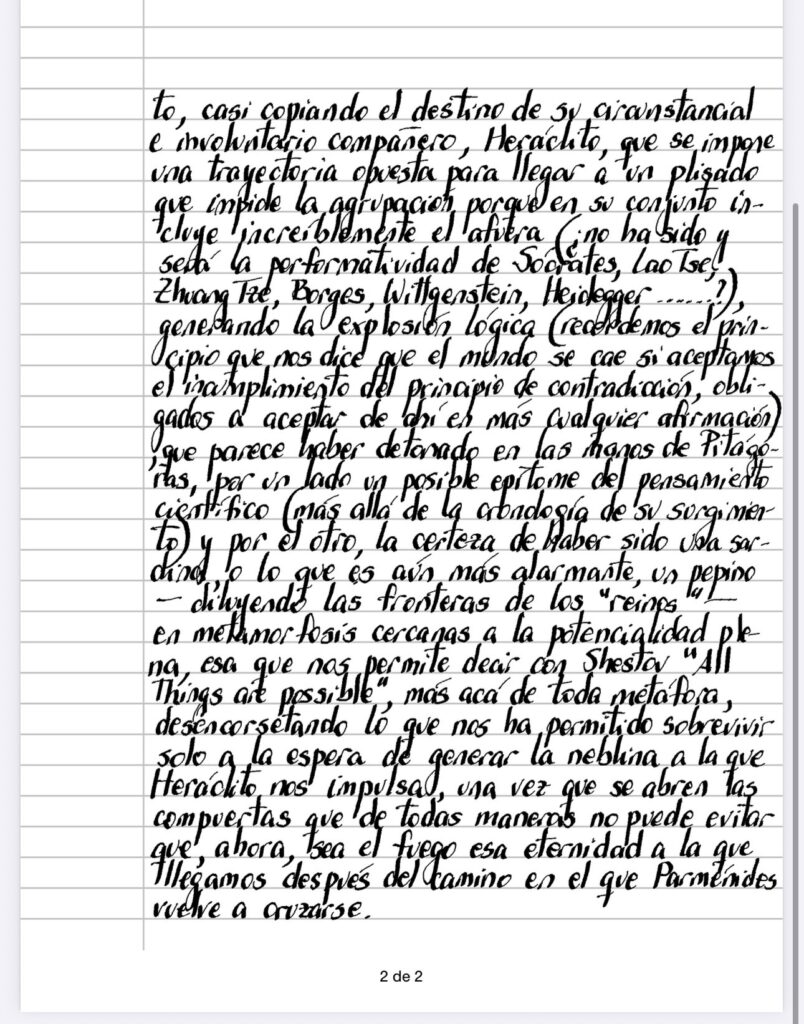 to, casi copiando el destino de su circunstancial
e involuntario compañero, Heráclito, que se impone
una trayectoria opuesta para llegar a un plisado
que impide la agrupación porque en su conjunto in-
cluye increíblemente el afuera (¿no ha sido y
será la performatividad de Sócrates, Lao Tse,
Zhuang Tze, Borges, Wittgenstein, Heidegger ......?),
generando la explosión lógica (recordemos el prin-
cipio que nos dice que el mundo se cae si aceptamos
el incumplimiento del principio de contradicción, obli-
gados a aceptar de ahí en más cualquier afirmación)
que parece haber detonado en las manos de Pitágo-
ras, por un lado un posible epítome del pensamiento
científico (más allá de la cronología de su surgimien-
to) y por el otro, la certeza de haber sido una sar-
dina, o lo que es aún más alarmante, un pepino
— diluyendo las fronteras de los "reinos" —
en metamorfosis cercanas a la potencialidad ple-
na, esa que nos permite decir con Shestov "All
Things are possible", más acá de toda metáfora,
desencorsetando lo que nos ha permitido sobrevivir
solo a la espera de generar la neblina a la que
Heráclito nos impulsa, una vez que se abren las
compuertas que de todas maneras no puede evitar
que, ahora, sea el fuego esa eternidad a la que
llegamos después del camino en el que Parménides
vuelve a cruzarse.
2 de 2